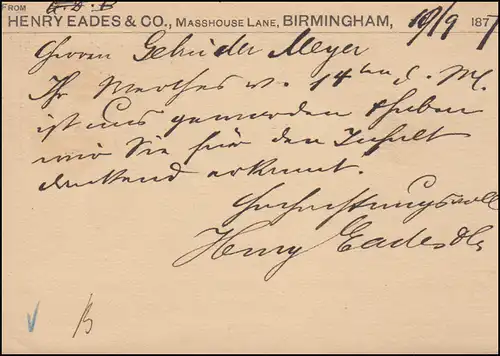 FROM
HENRY EADES & CO., MASSHOUSE LANE, BIRMINGHAM, 19/9 1877
Herren Gebrüder Meyer
Ihr Werthes v. 14ten d. M.
ist uns geworden & haben
wir Sie für den Inhalt
dankend erkannt.
Hochachtungsvoll
Henry Eades & Co
B